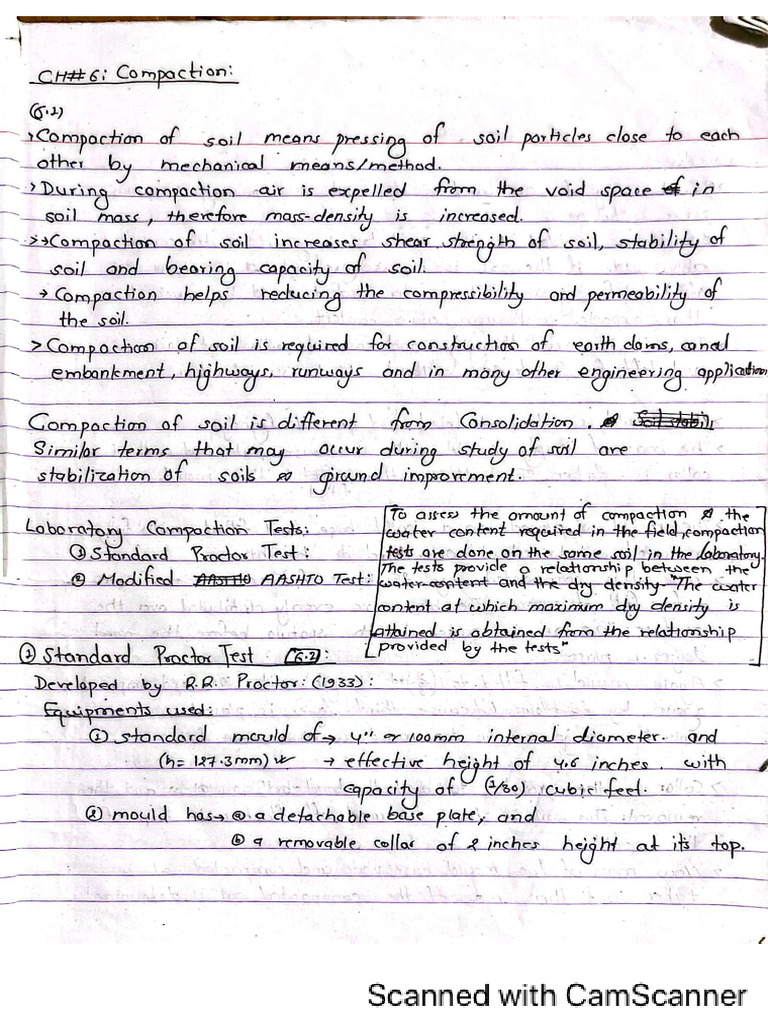 CH#6: Compaction:
(6.2)
> Compaction of soil means pressing of soil particles close to each
other by mechanical means/method.
> During compaction air is expelled from the void space in
soil mass, therefore mass-density is increased.
>→ Compaction of soil increases shear strength of soil, stability of
soil and bearing capacity of soil.
→ Compaction helps reducing the compressibility and permeability of
the soil.
> Compaction of soil is required for construction of earth dams, canal
embankment, highways, runways and in many other engineering application
Compaction of soil is different from Consolidation.
Similar terms that may occur during study of soil are
stabilization of soils & ground improvment.
Laboratory Compaction Tests:
① Standard Proctor Test:
② Modified AASHTO Test:
To assess the amount of compaction & the
water content required in the field, compaction
tests are done on the same soil in the laboratory.
The tests provide a relationship between the
water content and the dry density. "The water
content at which maximum dry density is
attained is obtained from the relationship
provided by the tests"
① Standard Proctor Test (6.2):
Developed by R.R. Proctor: (1933):
Equipments used:
① standard mould of → 4" or 100mm internal diameter. and
(h= 127.3mm) → effective height of 4.6 inches. with
capacity of (1/30) cubic feet.
② mould has → ⓐ a detachable base plate, and
ⓑ a removable collar of 2 inches height at its top.
Scanned with CamScanner